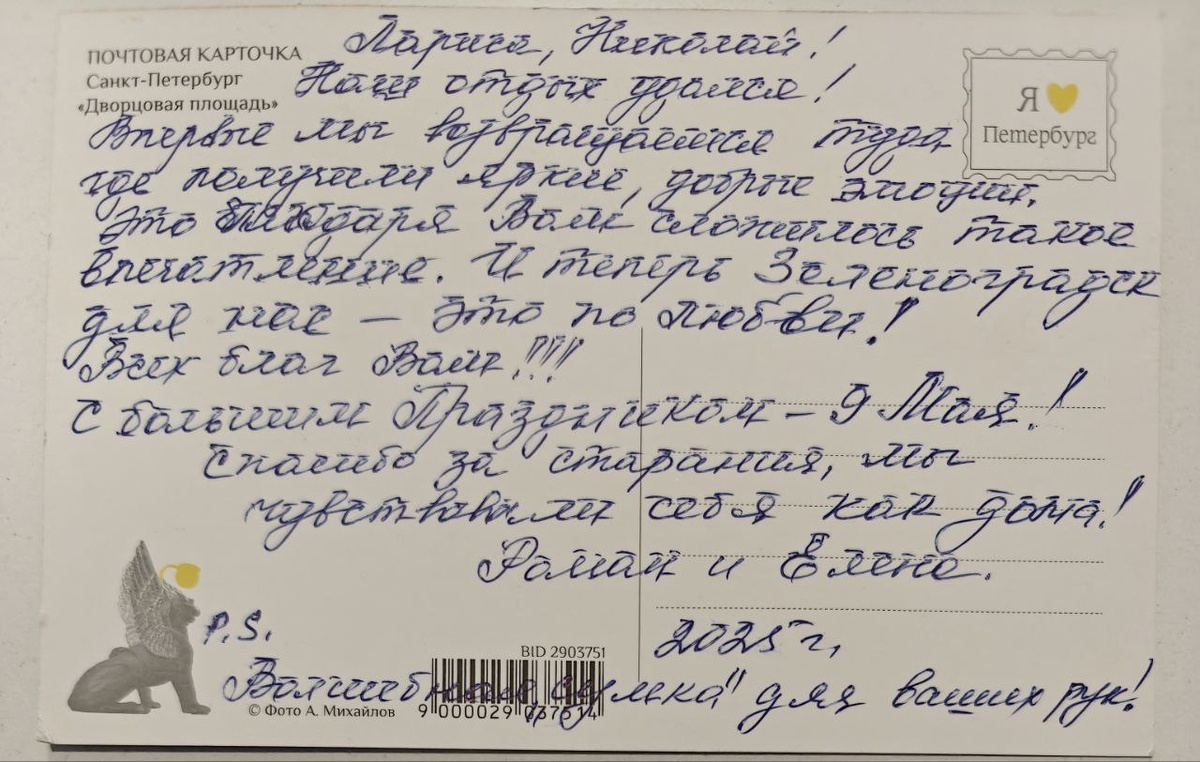 ПОЧТОВАЯ КАРТОЧКА
Санкт-Петербург
«Дворцовая площадь»
Я
Петербург
Лариса, Николай!
Наш отдых удался!
Впервые мы возвращаемся туда
где получили яркие, добрые эмоции.
Это благодаря Вам сложилось такое
впечатление. И теперь Зеленоградск
для нас – это по любви!
Всех благ Вам!!!
С большим Праздником – 9 Мая!
Спасибо за старания, мы
чувствовали себя как дома!
Роман и Елена.
2025 г.
P.S.
Волшебная „сумка" для ваших рук!
BID 2903751
© Фото А. Михайлов
9 000029 037514